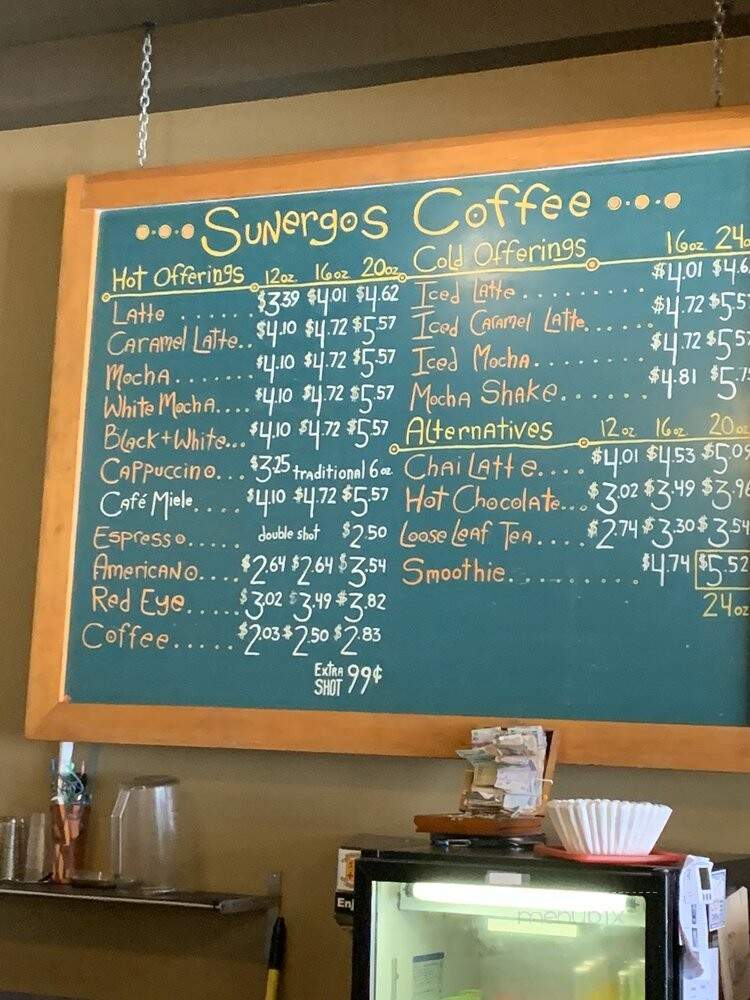 Sunergos Coffee
Hot Offerings 12oz 16oz 20oz
Latte ...... $3.39 $4.01 $4.62
Caramel Latte.. $4.10 $4.72 $5.57
Mocha....... $4.10 $4.72 $5.57
White Mocha.... $4.10 $4.72 $5.57
Black+White... $4.10 $4.72 $5.57
Cappuccino... $3.25 traditional 6oz
Café Miele..... $4.10 $4.72 $5.57
Espresso.... double shot $2.50
Americano.... $2.64 $2.64 $3.54
Red Eye..... $3.02 $3.49 $3.82
Coffee..... $2.03 $2.50 $2.83
Extra Shot 99¢
Cold Offerings 16oz 24o
Iced Latte......... $4.01 $4.6
Iced Caramel Latte...... $4.72 $5.5
Iced Mocha........ $4.72 $5.5
Mocha Shake....... $4.81 $5.7
Alternatives 12oz 16oz 20oz
Chai Latte.... $4.01 $4.53 $5.09
Hot Chocolate... $3.02 $3.49 $3.96
Loose Leaf Tea.... $2.74 $3.30 $3.54
Smoothie......... $4.74 $5.52
24oz
Enj
menupix